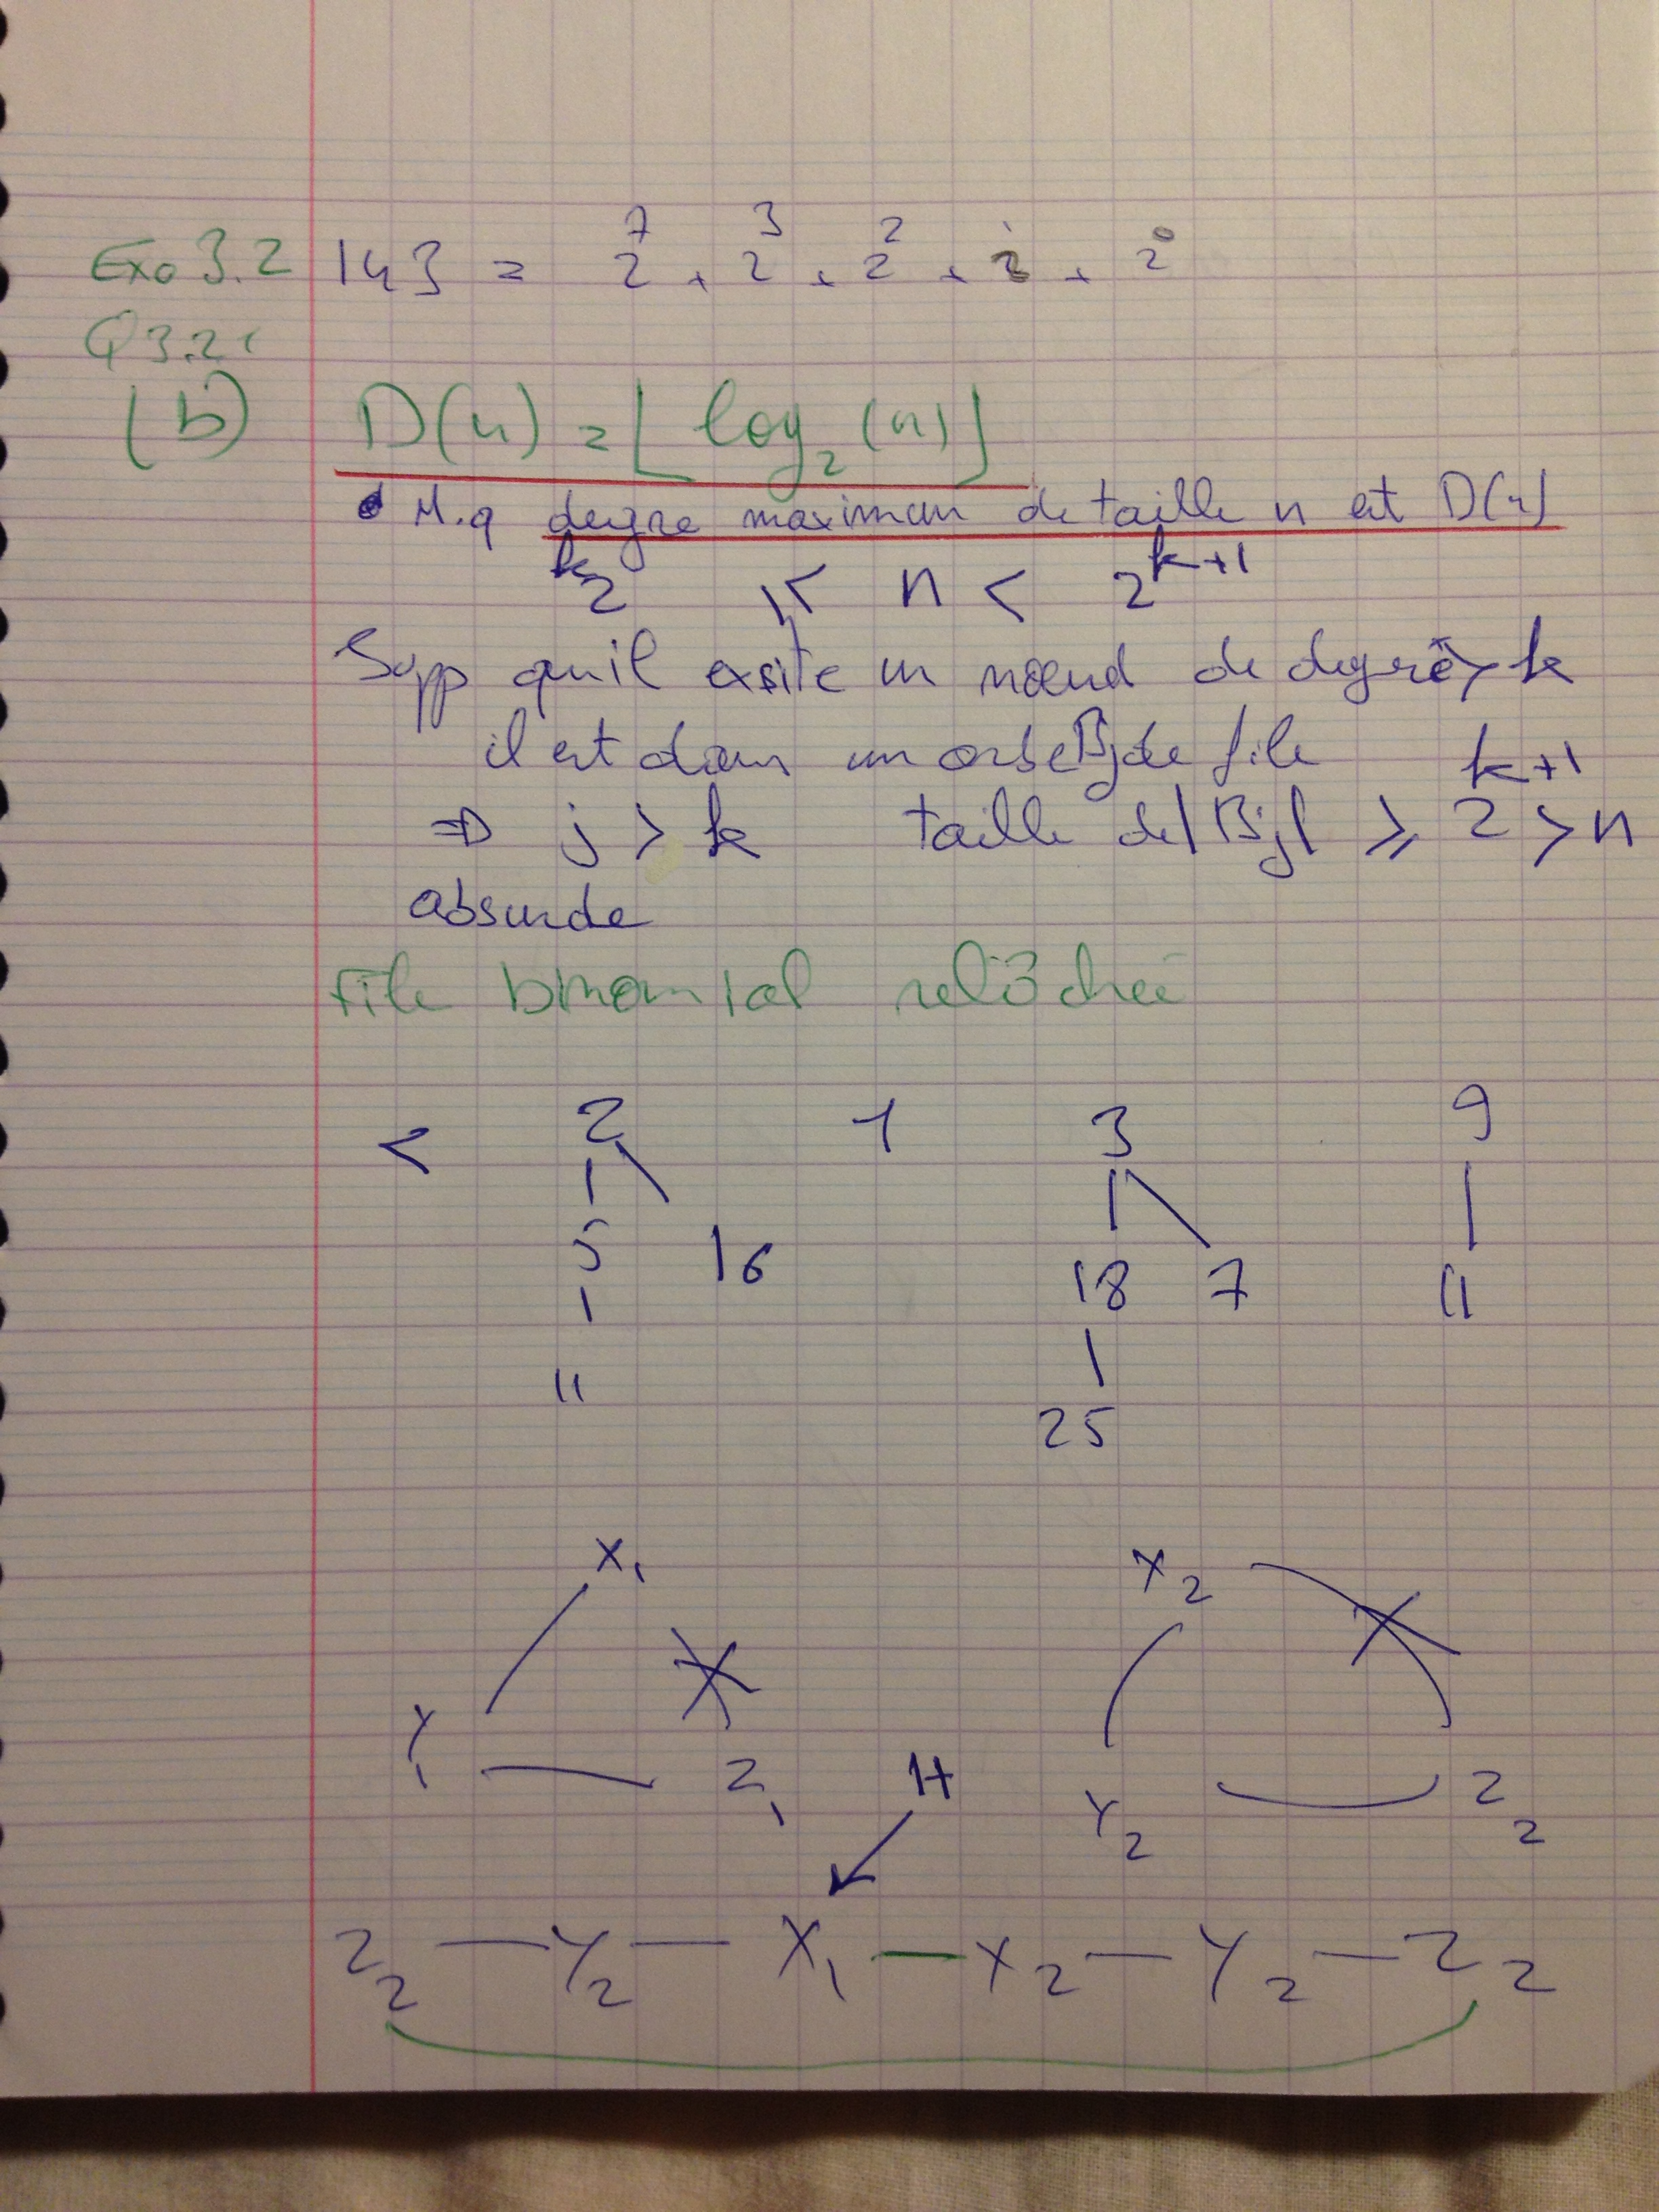 Exo 3.2 143 = 2^7 + 2^3 + 2^2 + 2^1 + 2^0
Q 3.2
(b) D(n) = ⌊log₂(n)⌋
• M.q degre maximum de taille n est D(n)
2^k ≤ n < 2^{k+1}
Supp qu'il exsite un nœud de degré > k
il est dans un arbe Bj de file
⇒ j > k taille de |Bj| ≥ 2^{k+1} > n
absurde
File binomial relâchée
< 2 1 3 9
5 16 18 7 11
11 25
X₁ X₂
Y₁ Z₁ H Y₂ Z₂
Z₂ — Y₂ — X₁ — X₂ — Y₂ — Z₂